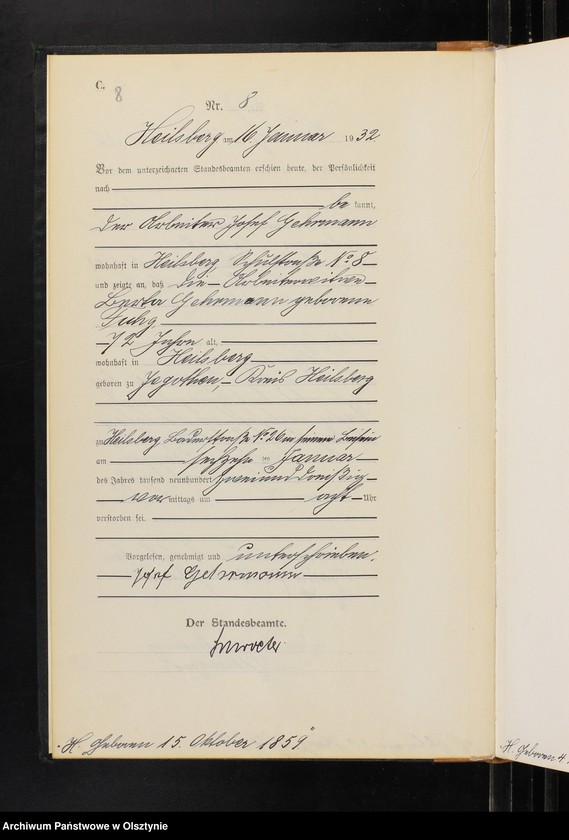 C.
8
Nr. 8
Heilsberg am 16 Januar 1932
Vor dem unterzeichneten Standesbeamten erschien heute, der Persönlichkeit
nach
be kannt,
der Arbeiter Josef Gehrmann
wohnhaft in Heilsberg, Schulstraße No 8
und zeigte an, daß die Arbeiterwitwe
Berta Gehrmann geborene
Fuhg
72 Jahre alt,
wohnhaft in Heilsberg
geboren zu Jegothen, Kreis Heilsberg
zu Heilsberg, Bauerstraße No 26 in seinem Beisein
am sechzehn ten Januar
des Jahres tausend neunhundert zweiunddreißig
vor mittags um acht Uhr
verstorben sei.
Vorgelesen, genehmigt und unterschrieben.
Josef Gehrmann
Der Standesbeamte.
H. Geboren 15. Oktober 1859
H. Geboren 4.
Archiwum Państwowe w Olsztynie